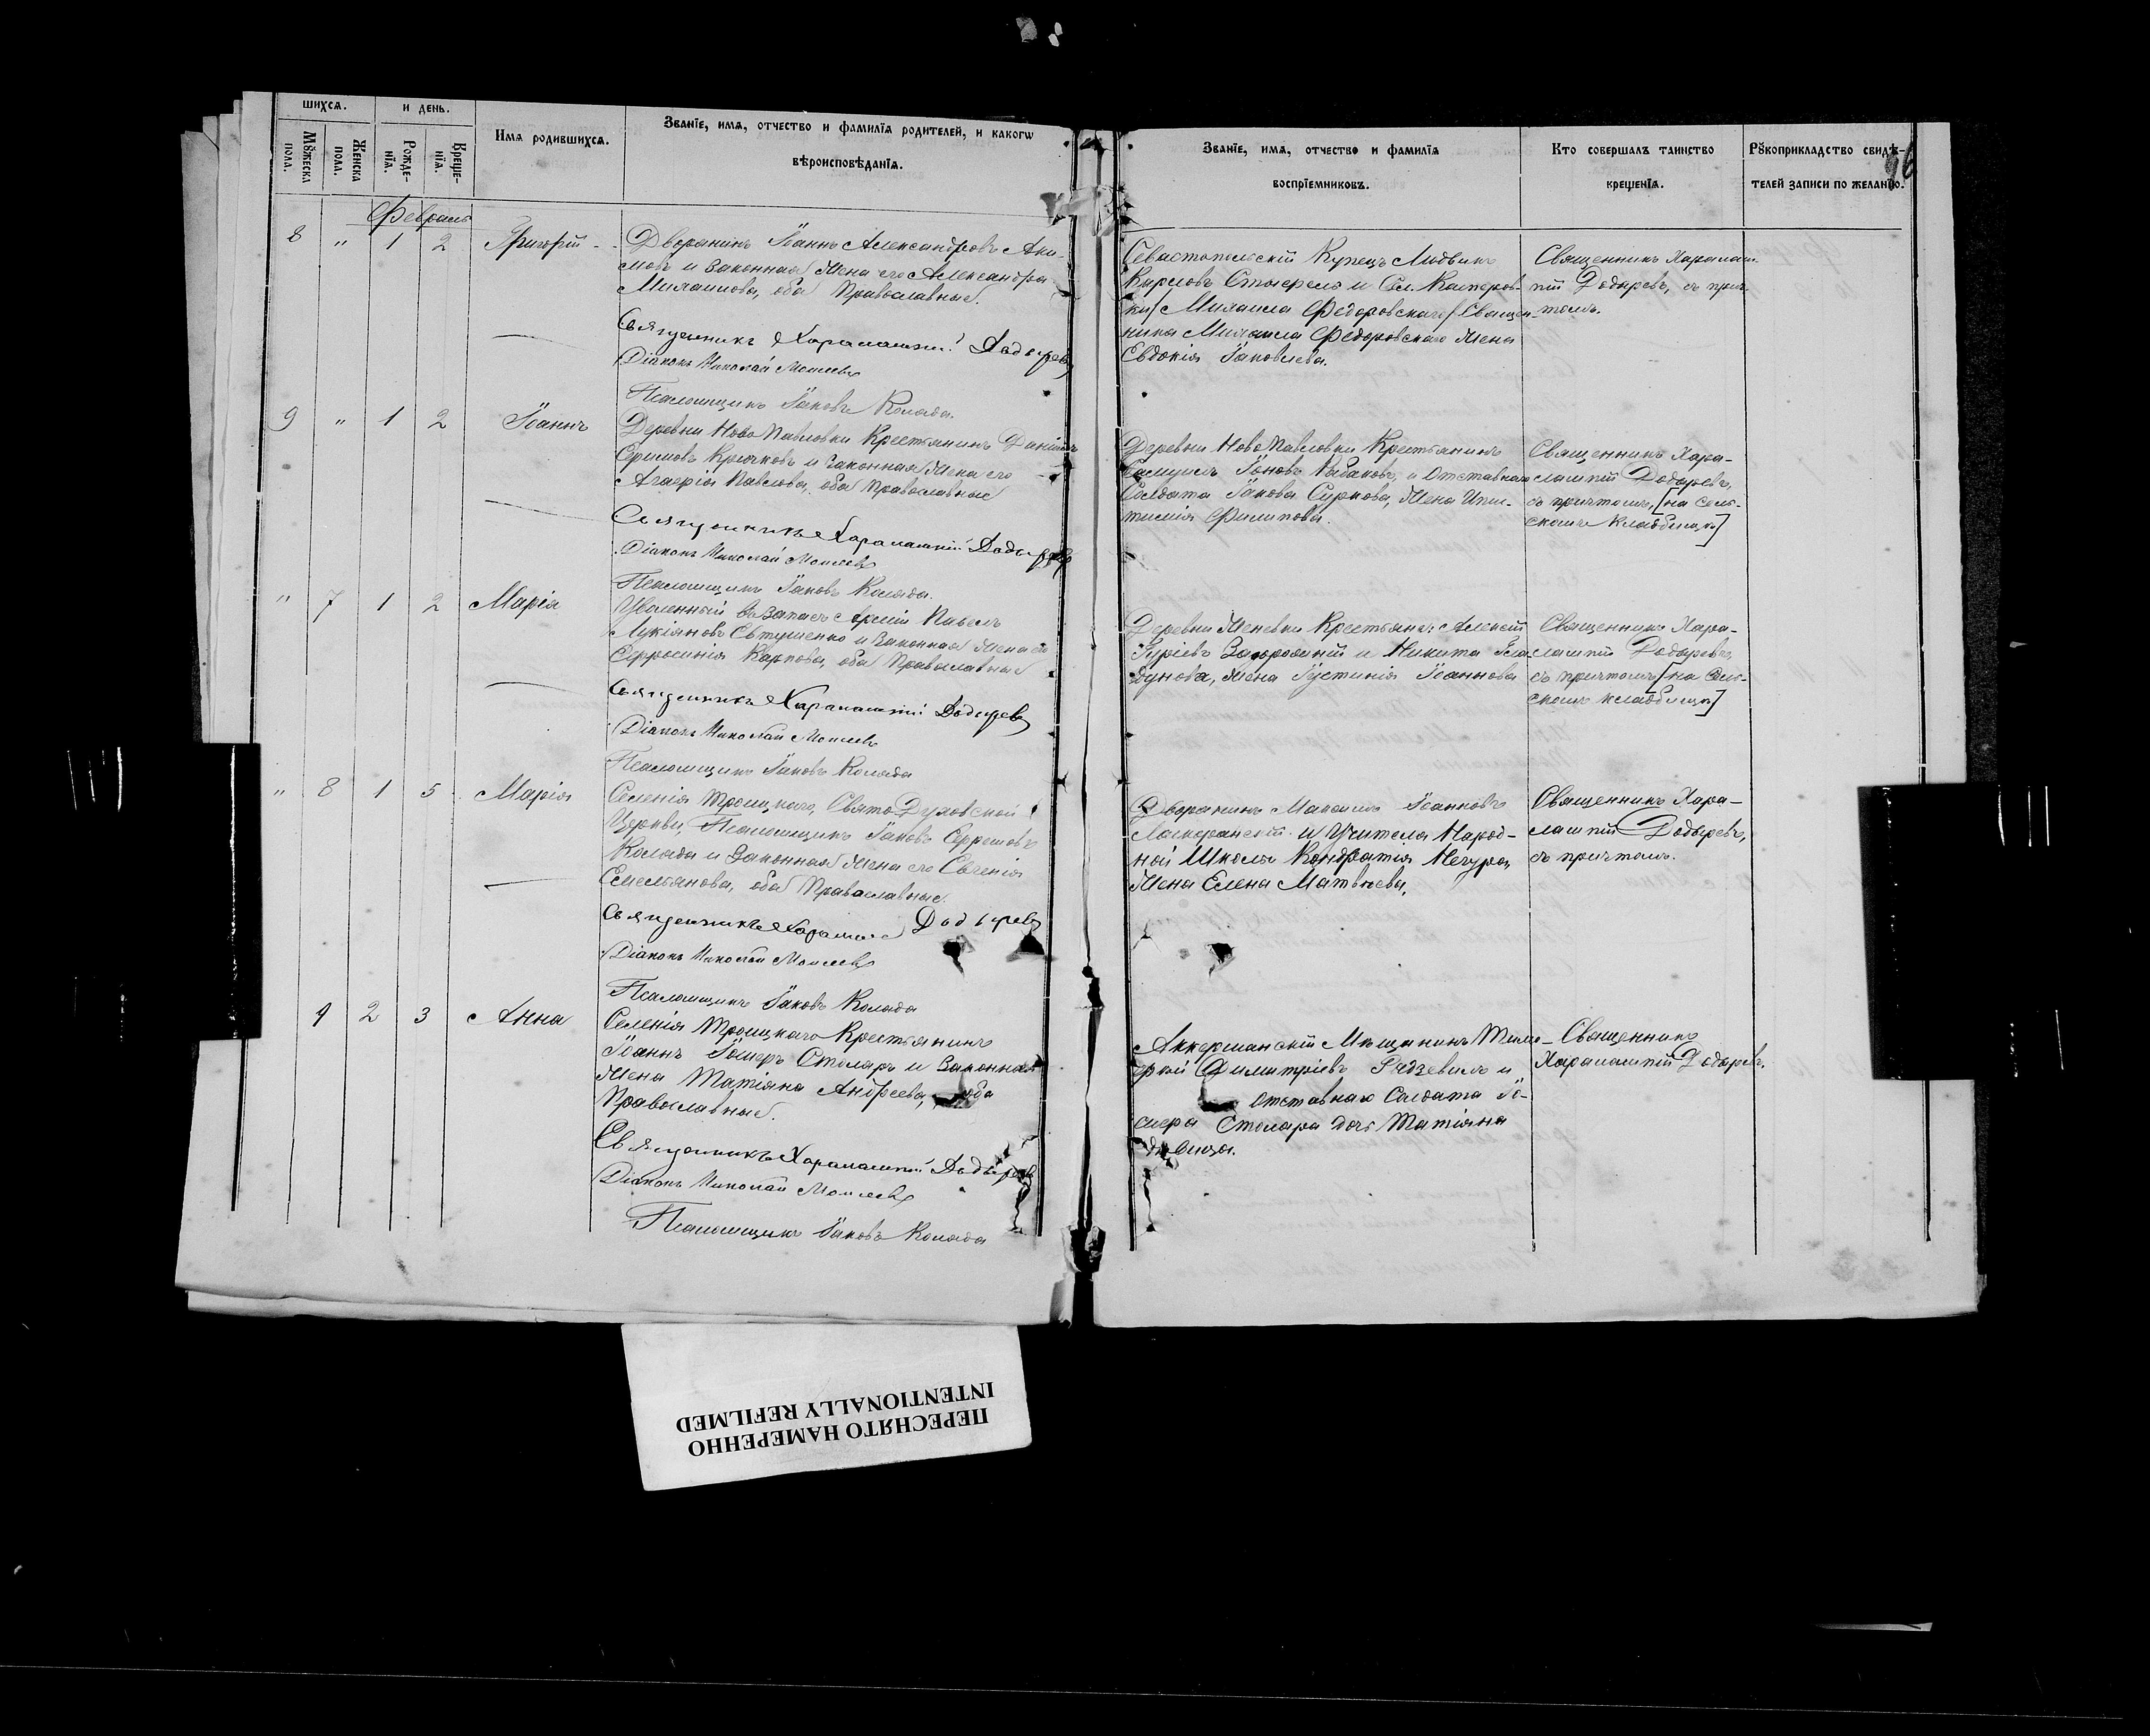 шихсѧ.
и день.
Мꙋжеска пола.
Женска пола.
Рожде-нїѧ.
Креще-нїѧ.
Имѧ родившихсѧ.
Званїе, имѧ, отчество и фамилїѧ родителей, и какогѡ
вѣроисповѣданїѧ.
Февраль
8 " 1 2 Григорій
Дворянинъ Іоаннъ Александровъ Аки-
мовъ и законная жена его Александра
Михаилова, оба Православные.
Священникъ Харалампій Додыревъ
Діаконъ Николай Моисеевъ
Псаломщикъ Іаковъ Коляда.
9 " 1 2 Іоаннъ
Деревни НовоПавловки Крестьянинъ Даніилъ
Крючковъ и законная жена его
Агафія Павлова, оба Православные
Священникъ Харалампій Додыревъ
Діаконъ Николай Моисеевъ
Псаломщикъ Іаковъ Коляда.
" 7 1 2 Марія
Уволенный въ запасъ Арміи Павелъ
Лукіяновъ Евтушенко и законная жена его
Евфросинія Карпова, оба Православные
Священникъ Харалампій Додыревъ
Діаконъ Николай Моисеевъ
Псаломщикъ Іаковъ Коляда
" 8 1 5 Марія
Селенія Троицкаго, СвятоДуховской
Церкви, Псаломщикъ Іаковъ Ефремовъ
Коляда и законная жена его Евгенія
Емельянова, оба Православные.
Священникъ Додыревъ
Діаконъ Николай Моисеевъ
Псаломщикъ Іаковъ Коляда
9 2 3 Анна
Селенія Троицкаго Крестьянинъ
Іоаннъ Столяръ и Законная
жена Татіана Андреева, оба
Православные.
Священникъ Харалампій Додыревъ
Діаконъ Николай Моисеевъ
Псаломщикъ Іаковъ Коляда
Званїе, имѧ, отчество и фамилїѧ
воспрїемниковъ.
Кто совершалъ таинство
крещенїѧ.
Рꙋкоприкладство свидѣ-
телей записи по желанїю.
Севастопольскій Купецъ Людвикъ
Карловъ и Сл. Касперов-
ки/Михаила Федоровскаго/Священ-
ника Михаила Федоровскаго жена
Евдокія Іаковлева.
Священникъ Харалам-
пій Додыревъ, съ прич-
томъ.
Деревни НовоПавловки Крестьянинъ
Самуилъ Іоновъ и Отставнаго
Солдата Іакова Суркова, жена
Филипова.
Священникъ Хара-
лампій Додыревъ,
съ причтомъ, [на Сель-
скомъ кладбищѣ]
Деревни Крестьяне: Алексѣй
и Никита
жена Іустинія Іоаннова
Священникъ Хара-
лампій Додыревъ,
съ причтомъ [на Сель-
скомъ кладбищѣ]
Дворянинъ Максимъ Іоанновъ
и Учителя Народ-
ной Школы Кондратія Мечура,
жена Елена Матвѣева.
Священникъ Хара-
лампій Додыревъ,
съ причтомъ.
Аккерманскій Мѣщанинъ Тимо-
фей Димитріевъ и
Отставнаго Солдата
Столяра дочь Татіана
дѣвица.
Священникъ
Харалампій Додыревъ.
ПЕРЕСНЯТО НАМЕРЕННО
INTENTIONALLY REFILMED